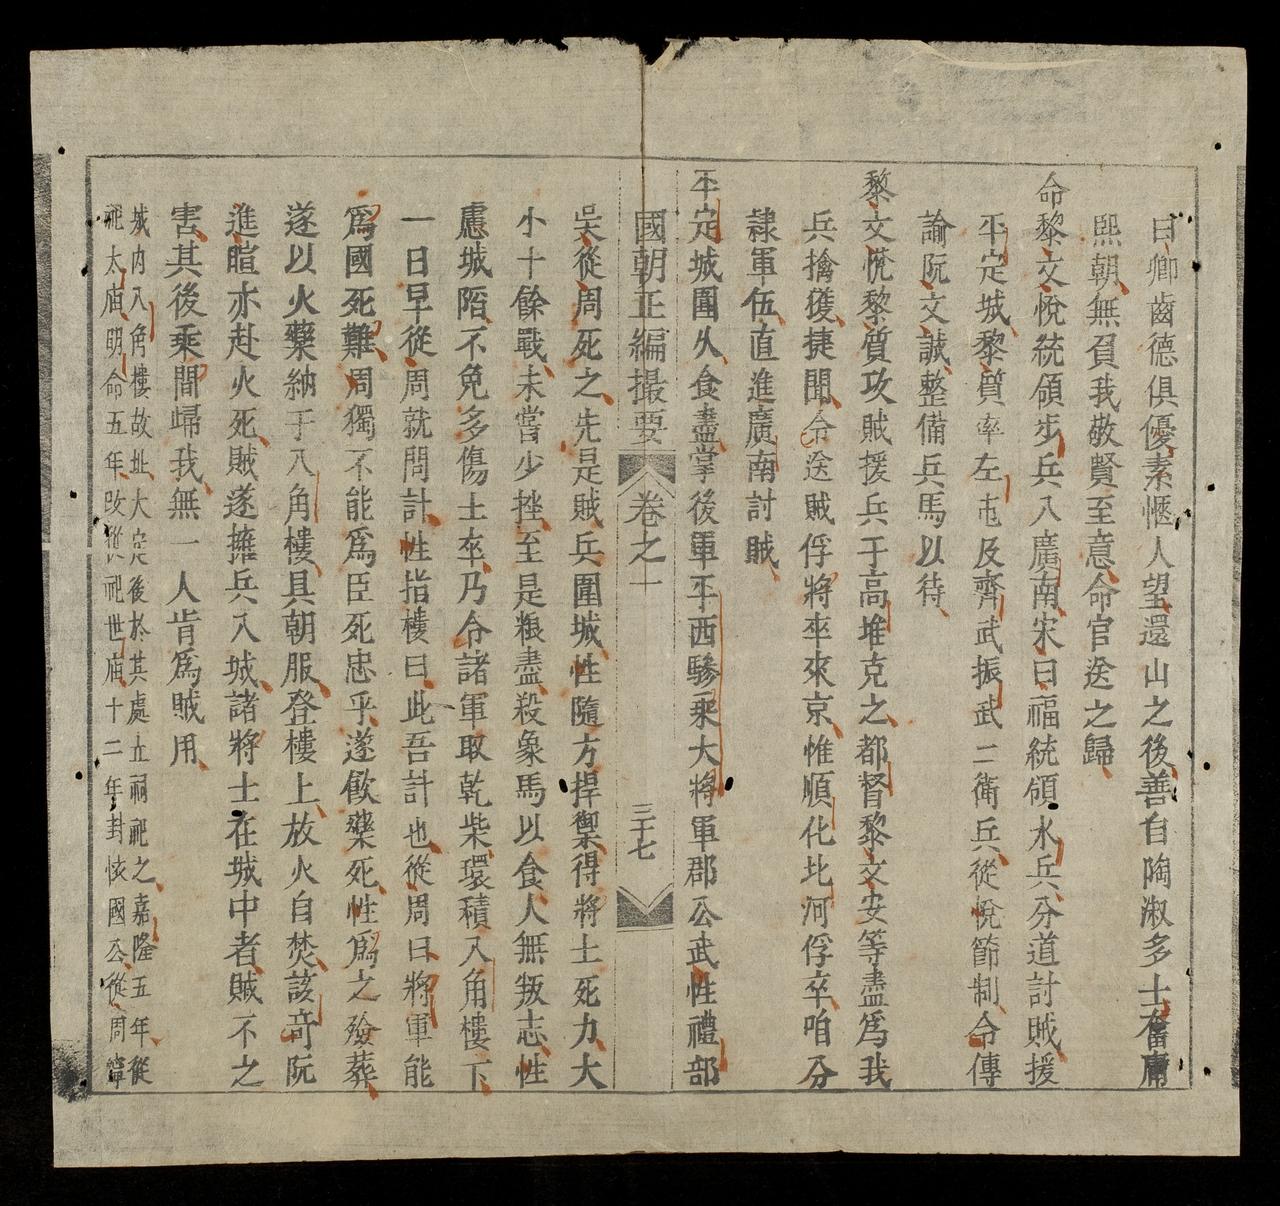 曰卿齒德俱優素愜人望還山之後善自陶淑多士奮庸
熙朝無負我敬賢至意命官送之歸
命黎文悅統領步兵入廣南宋曰福統領水兵分道討賊援
平定城黎質率左屯及齊武振武二衛兵從悅節制令傳
諭阮文誠整備兵馬以待
黎文悅黎質攻賊援兵于高堆克之都督黎文安等盡爲我
兵擒獲捷聞令送賊俘將卒來京惟順化北河俘卒咱分
隷軍伍直進廣南討賊
平定城圍久食盡掌後軍平西驂乗大將軍郡公武性禮部
國朝正編撮要 卷之一 三十七
吳從周死之先是賊兵圍城性隨方捍禦得將士死力大
小十餘戰未嘗少挫至是粮盡殺象馬以食人無叛志性
慮城陷不免多傷士卒乃令諸軍取乾柴環積八角樓下
一日早從周就問計性指樓曰此吾計也從周曰將軍能
爲國死難周獨不能爲臣死忠乎遂飲藥死性爲之殮葬
遂以火藥納于八角樓具朝服登樓上放火自焚該奇阮
進暄亦赴火死賊遂擁兵入城諸將士在城中者賊不之
害其後乘間歸我無一人肯爲賊用
城内八角樓故址大定後於其處立祠祀之嘉隆五年從
祀太庙明命五年改從祀世庙十二年封懷國公從周寧